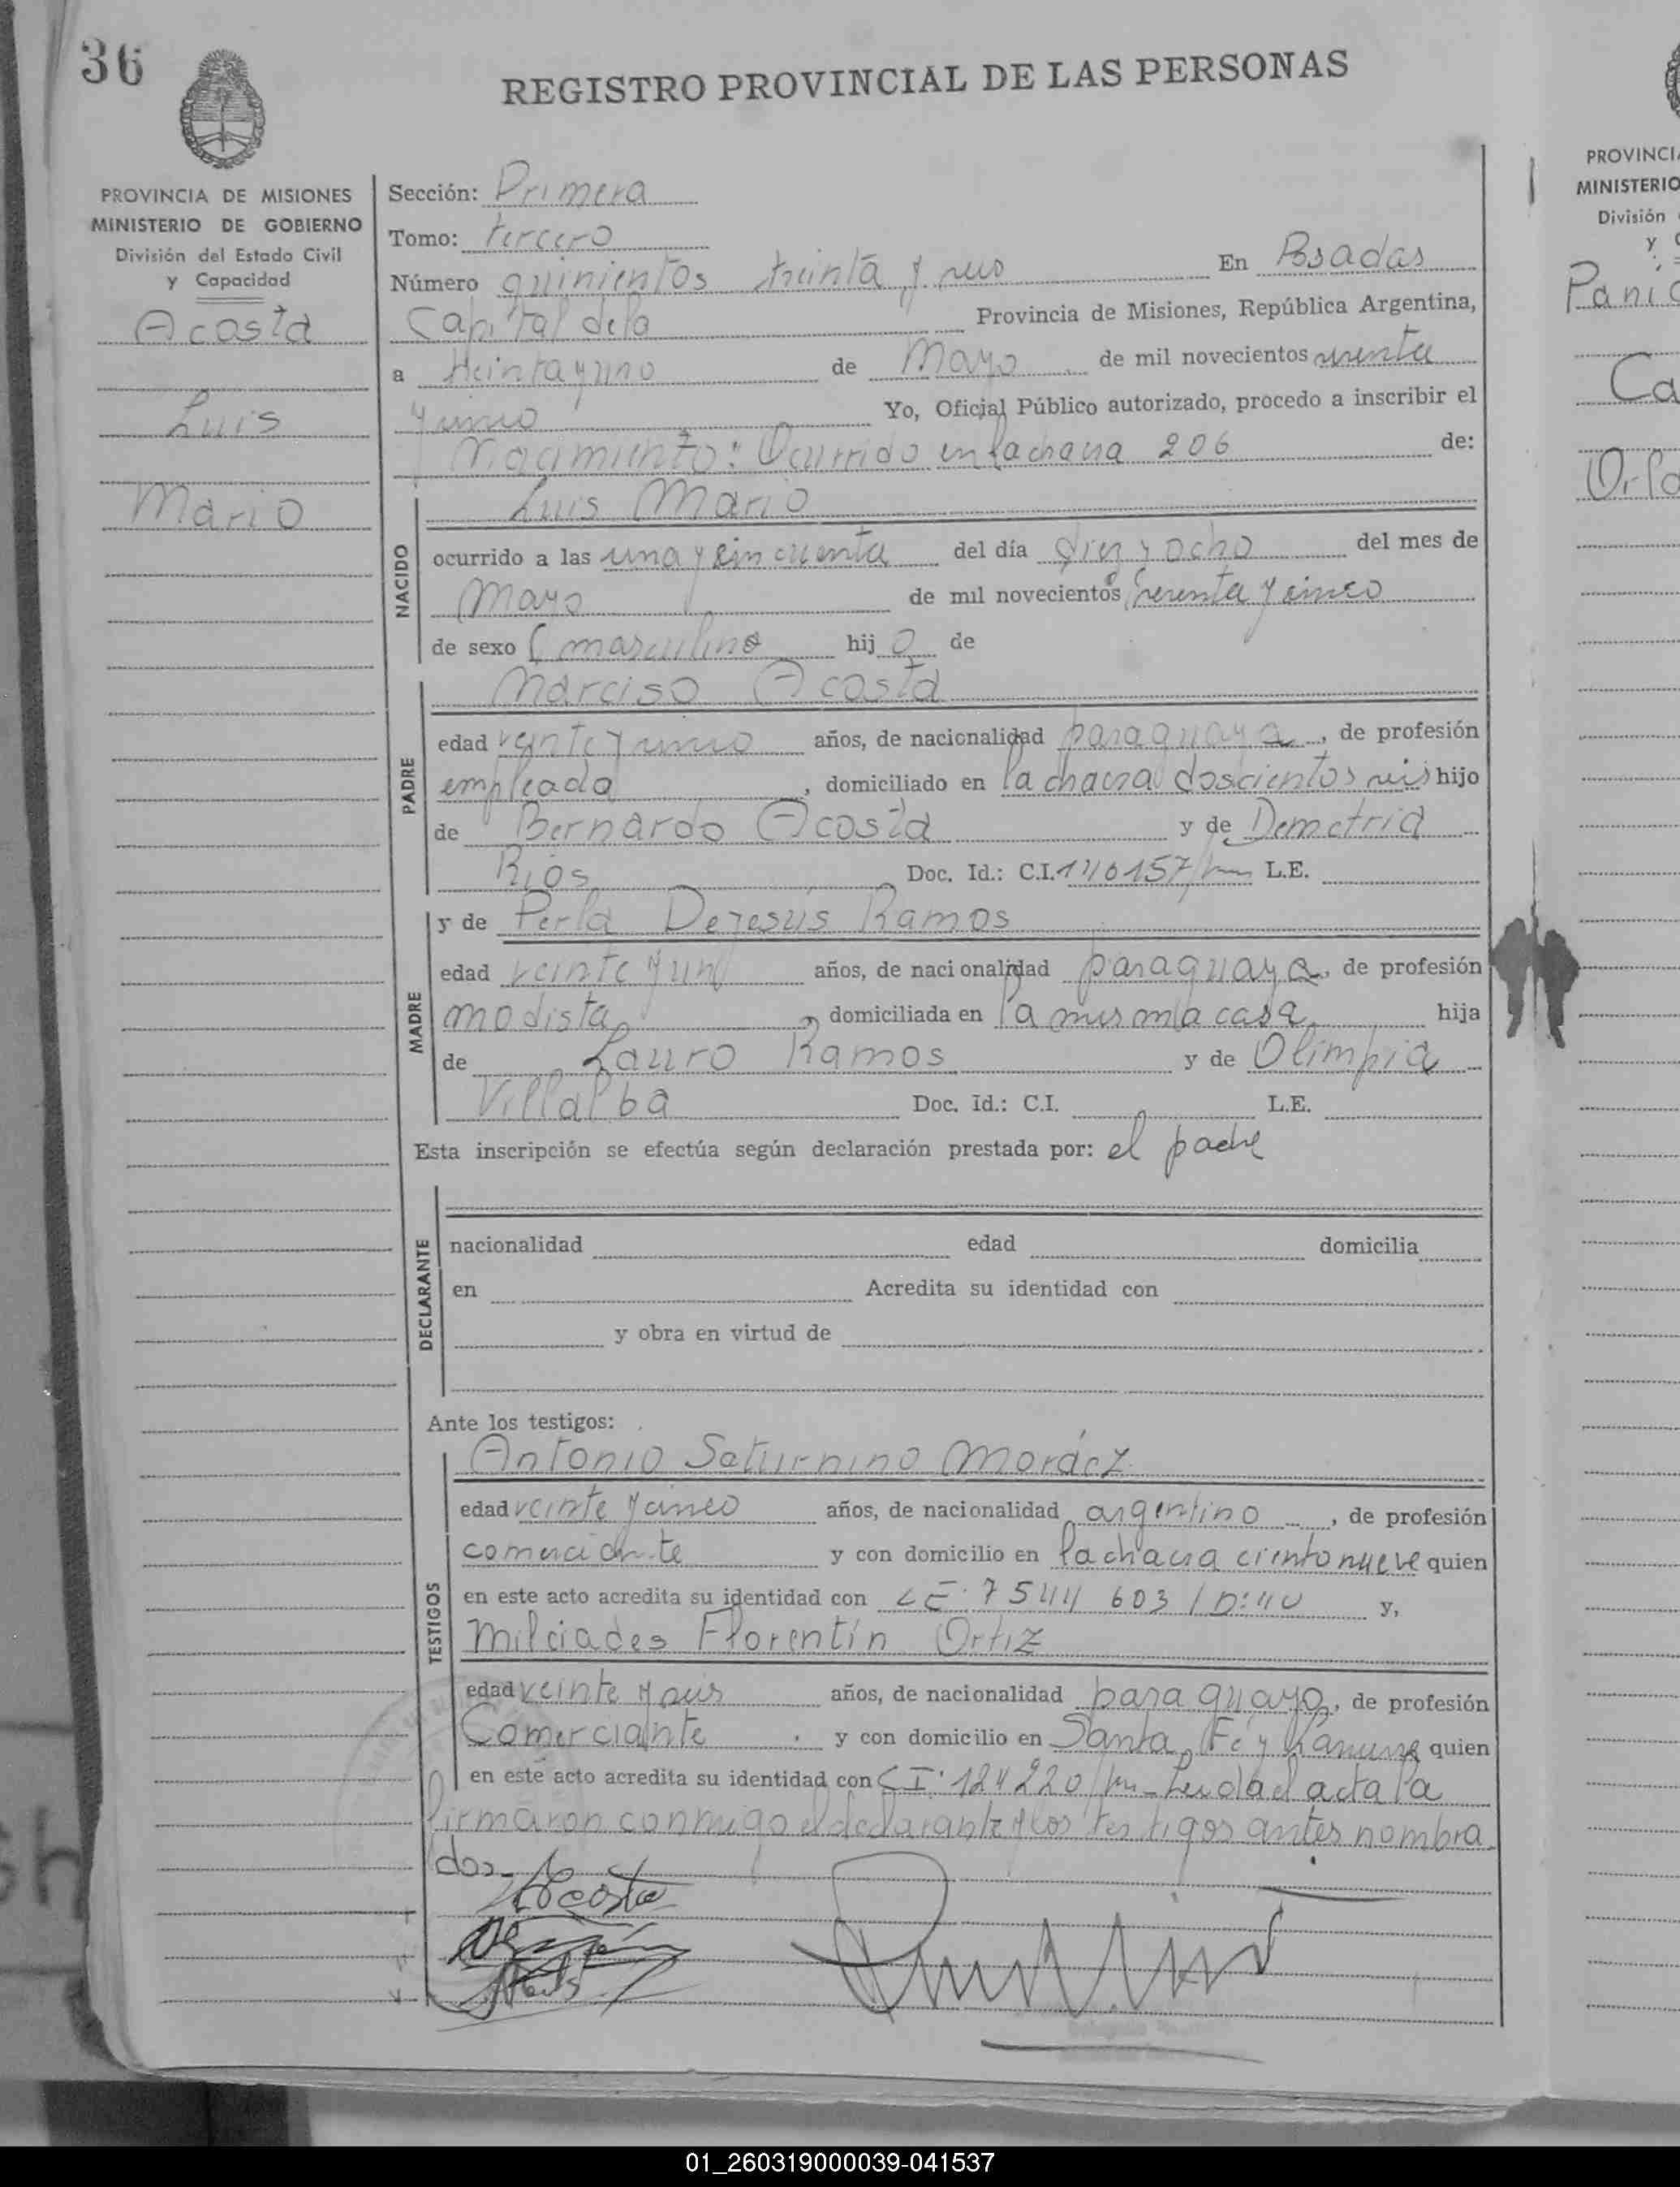 36
REGISTRO PROVINCIAL DE LAS PERSONAS
PROVINCIA DE MISIONES
MINISTERIO DE GOBIERNO
División del Estado Civil
y Capacidad
Acosta
Luis
Mario
Sección: Primera
Tomo: tercero
Número quinientos treinta y seis En Posadas
Capital dela Provincia de Misiones, República Argentina,
a treinta y uno de Mayo de mil novecientos
Yo, Oficial Público autorizado, procedo a inscribir el
Nacimiento: Ocurrido en la chacra 206 de:
Luis Mario
NACIDO
ocurrido a las una y cincuenta del día diez y ocho del mes de
Mayo de mil novecientos y cinco
de sexo masculino hij o de
PADRE
Narciso Acosta
edad veinte y cinco años, de nacionalidad paraguaya, de profesión
empleado, domiciliado en la chacra doscientos seis hijo
de Bernardo Acosta y de Demetria
Rios Doc. Id.: C.I. L.E.
MADRE
y de Perla Dejesús Ramos
edad veinte y un años, de nacionalidad paraguaya, de profesión
modista, domiciliada en la misma casa hija
de Lauro Ramos y de Olimpia
Villalba Doc. Id.: C.I. L.E.
Esta inscripción se efectúa según declaración prestada por: el padre
DECLARANTE
nacionalidad edad domicilia
en Acredita su identidad con
y obra en virtud de
Ante los testigos:
TESTIGOS
Antonio Saturnino Moráez
edad veinte y cinco años, de nacionalidad argentino, de profesión
comerciante y con domicilio en la chacra ciento nueve quien
en este acto acredita su identidad con LE. 7544 603 y,
Milciades Florentín Ortiz
edad veinte y seis años, de nacionalidad paraguayo, de profesión
Comerciante y con domicilio en Santa Fé y quien
en este acto acredita su identidad con CI. 124220 Leida el acta la
firmaron conmigo el declarante y los testigos antes nombra
dos-
Acosta
PROVINCIA
MINISTERIO
División
y
Ca
01_260319000039-041537